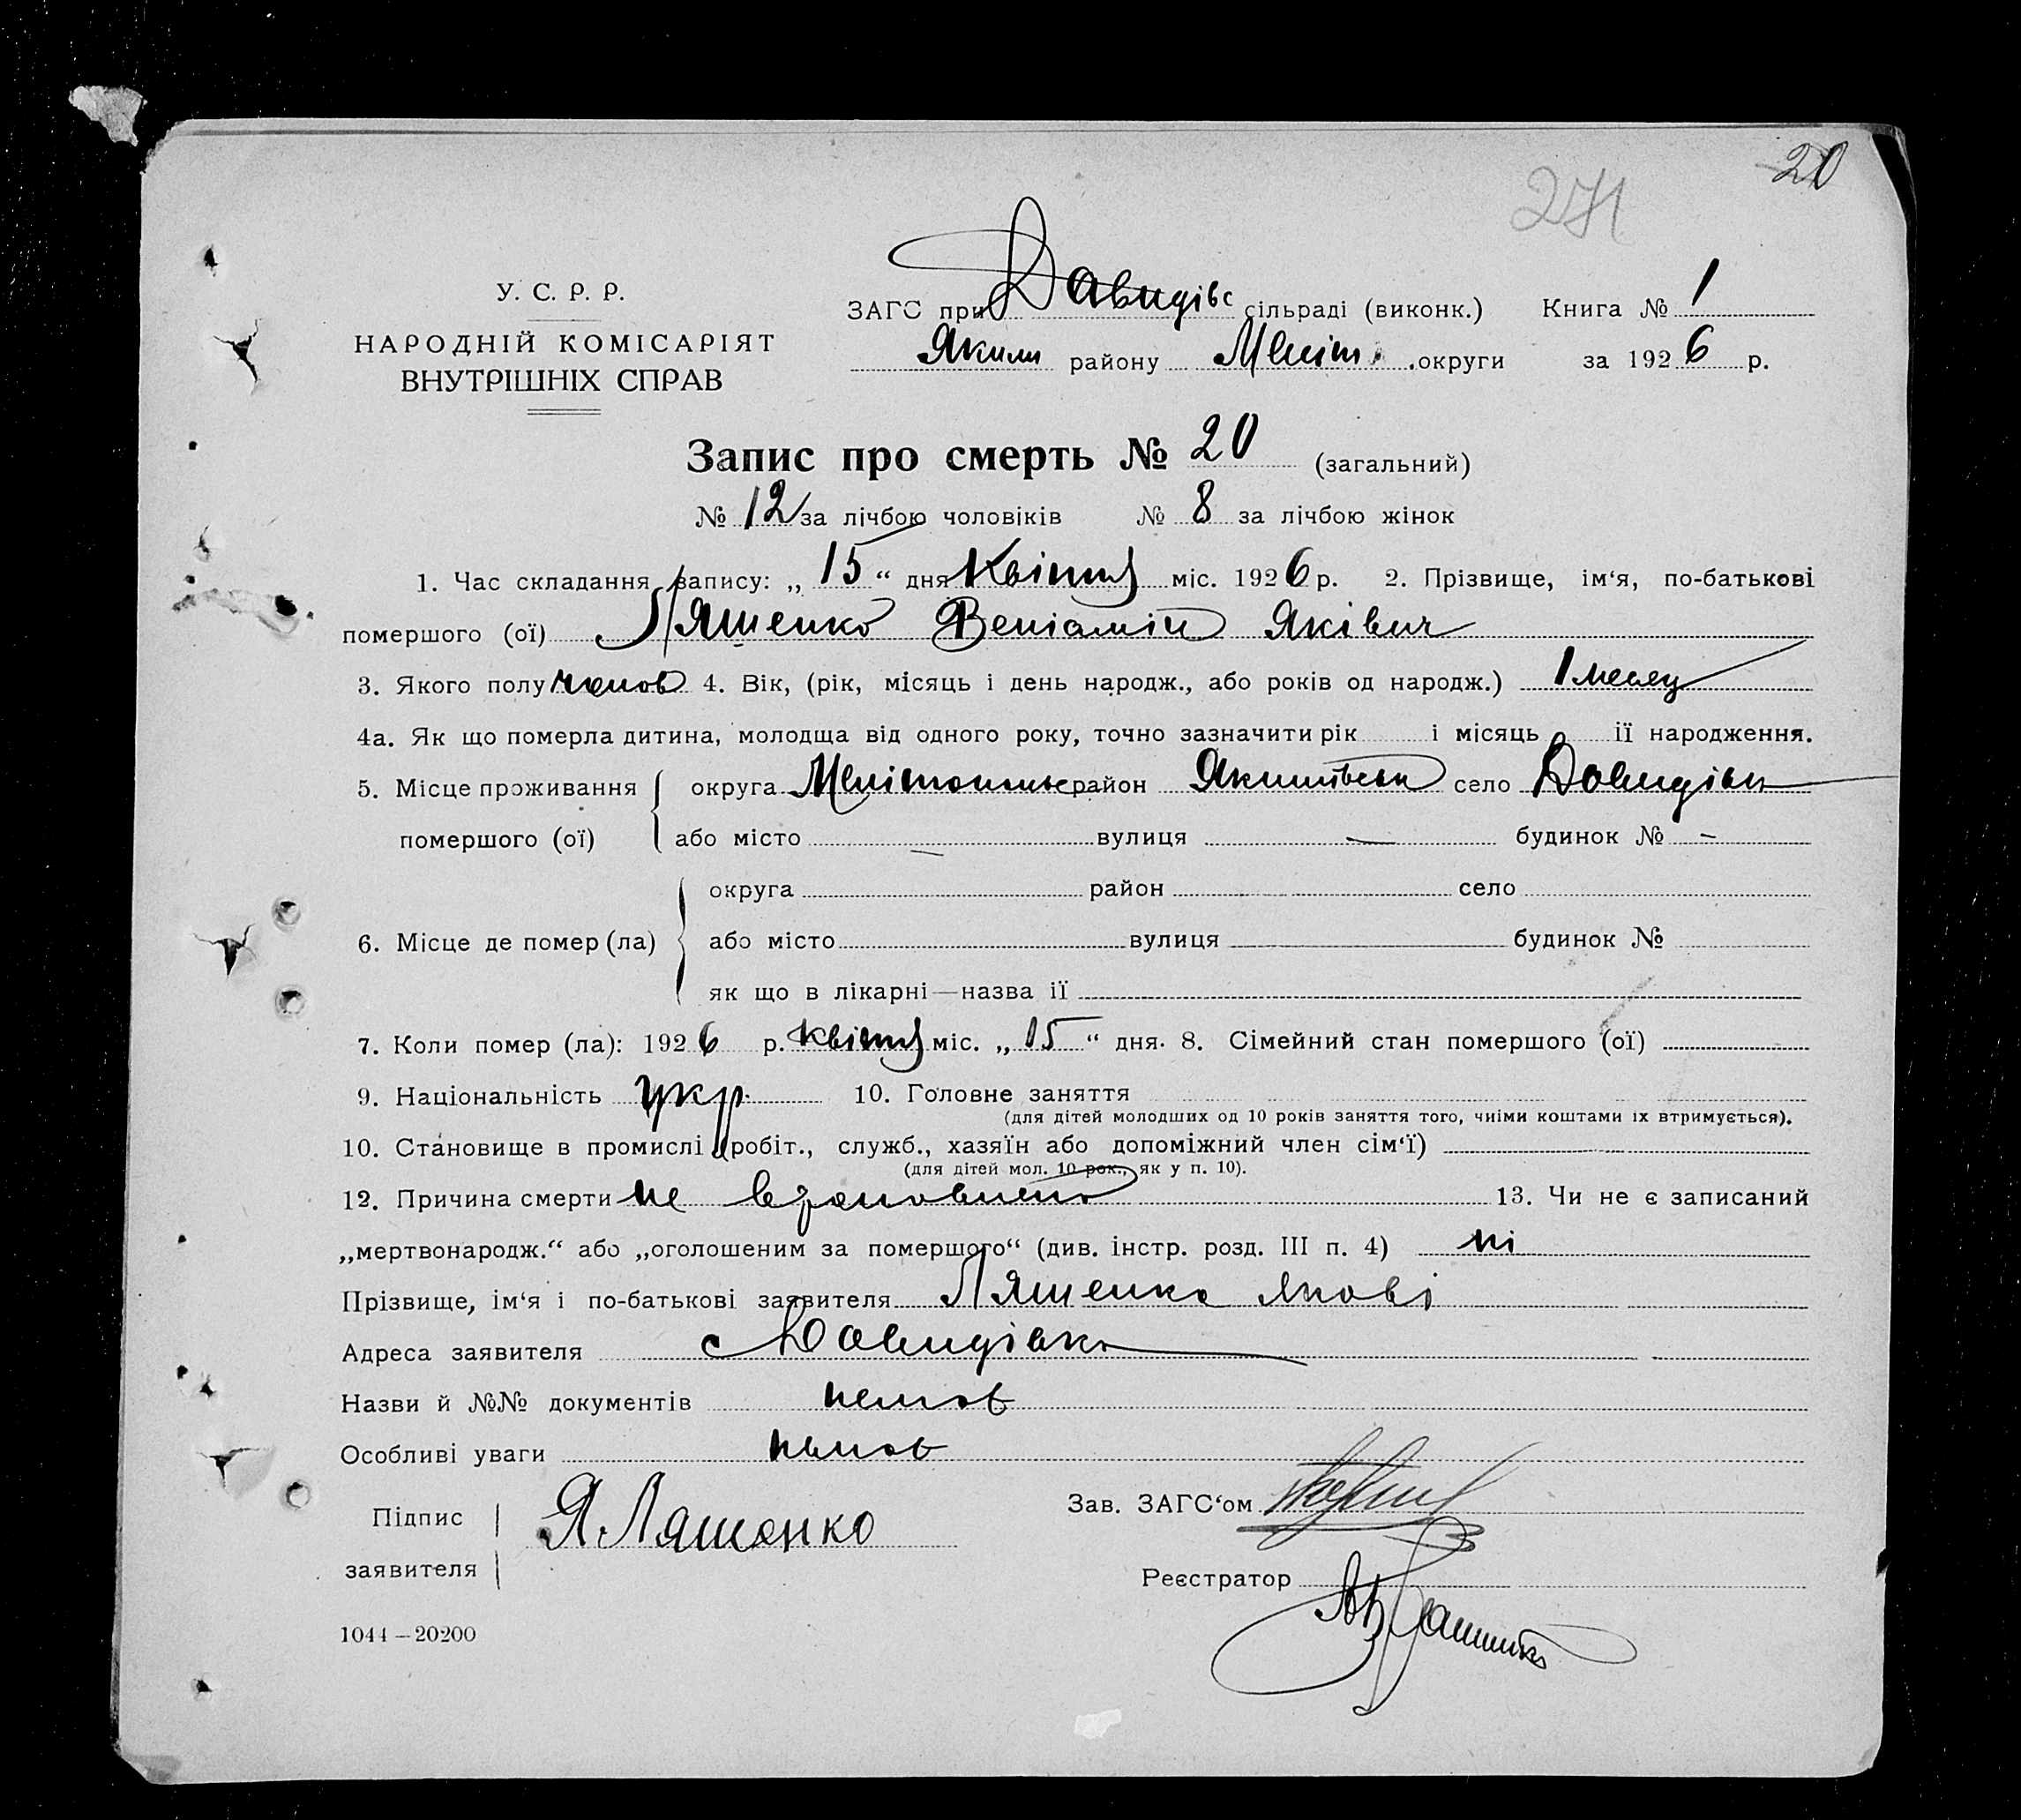 20
271
У. С. Р. Р.
НАРОДНІЙ КОМІСАРІЯТ
ВНУТРІШНІХ СПРАВ
ЗАГС при Давидівс сільраді (виконк.) Книга № 1
Яким району Меліт. округи за 1926 р.
Запис про смерть № 20 (загальний)
№ 12 за лічбою чоловіків № 8 за лічбою жінок
1. Час складання запису: „ 15 “ дня Квітня міс. 1926 р. 2. Прізвище, ім‘я, по-батькові
помершого (ої) Ляшенко Веніамін Яківич
3. Якого полу чолов 4. Вік, (рік, місяць і день народж., або років од народж.) 1 месец
4а. Як що померла дитина, молодща від одного року, точно зазначити рік і місяць її народження.
5. Місце проживання округа Мелітопольс район Якимівськ село Давидівк
помершого (ої) або місто — вулиця — будинок № –
округа район село
6. Місце де помер (ла) або місто вулиця будинок №
як що в лікарні—назва її
7. Коли помер (ла): 1926 р. Квітня міс. „ 15 “ дня. 8. Сімейний стан помершого (ої)
9. Національність укр. 10. Головне заняття
(для дітей молодших од 10 років заняття того, чиїми коштами їх втримується).
10. Становище в промислі (робіт., служб., хазяїн або допоміжний член сім‘ї)
(для дітей мол. 10 рок., як у п. 10).
12. Причина смерти не встановлено 13. Чи не є записаний
„мертвонародж.“ або „оголошеним за помершого“ (див. інстр. розд. III п. 4) ні
Прізвище, ім‘я і по-батькові заявителя Ляшенко Якові
Адреса заявителя с Давидівка
Назви й №№ документів немає
Особливі уваги немає
Підпис
заявителя
Я. Ляшенко
Зав. ЗАГС‘ом
Реєстратор
1044—20200